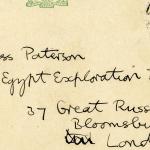 ss Paterson
Egypt Exploration
37 Great Russ
Bloomsbu
Lond